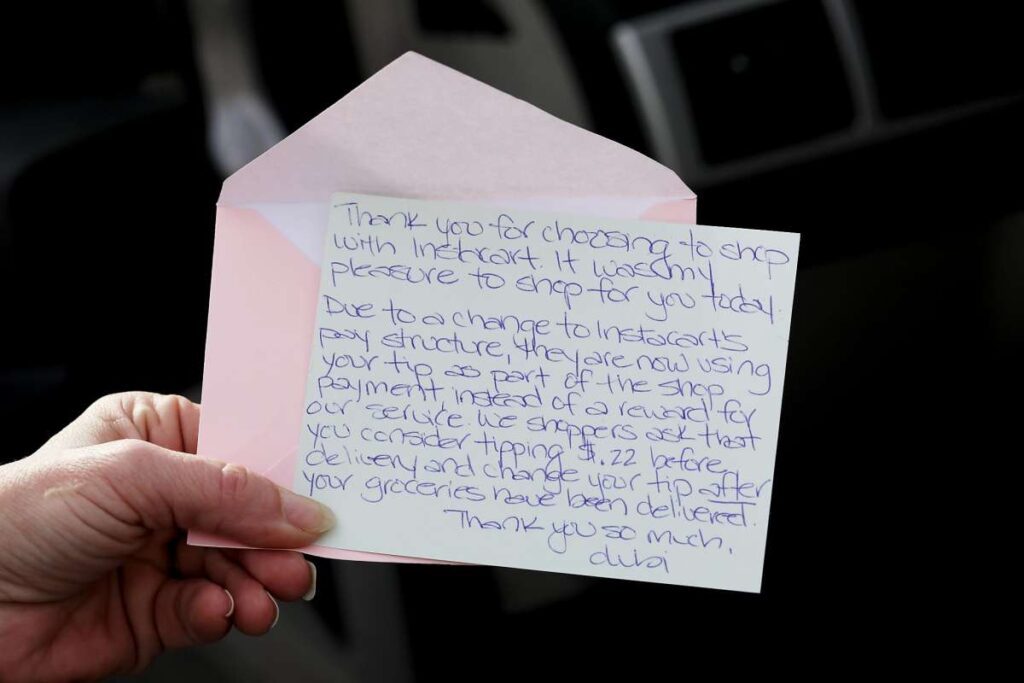 Thank you for choosing to shop
with Instacart. It was my
pleasure to shop for you today.
Due to a change to Instacart's
pay structure, they are now using
your tip as part of the shop
payment instead of a reward for
our service. We shoppers ask that
you consider tipping $.22 before
delivery and change your tip after
your groceries have been delivered.
Thank you so much,